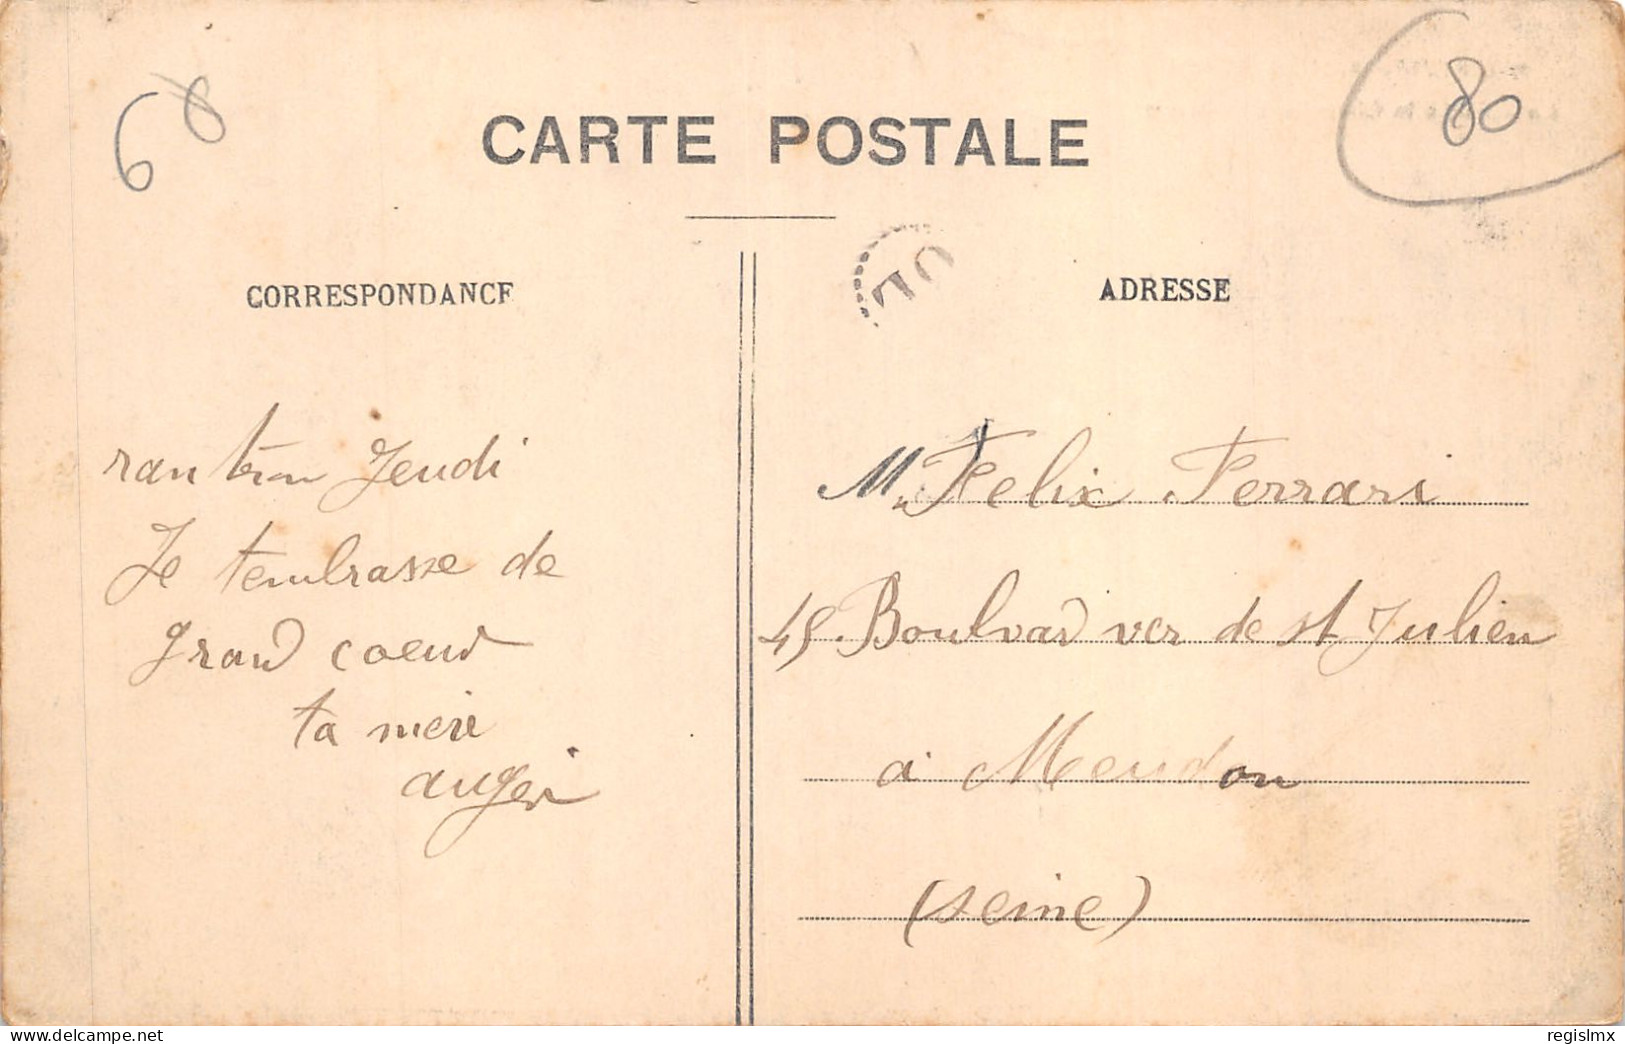 68
80
CARTE POSTALE
OL
CORRESPONDANCE
ADRESSE
rantron Jeudi
Je tembrasse de
grand coeur
ta mère
M. Felix Ferrari
45 Boulvard ver de st Julien
à Meudon
(seine)
www.delcampe.net
regislmx